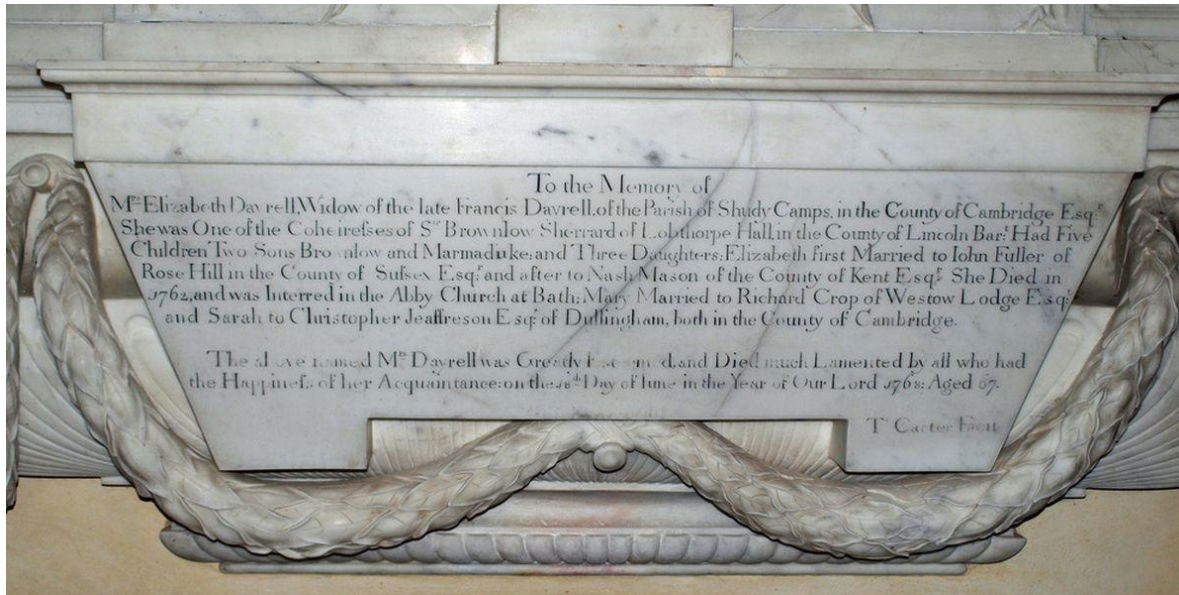 To the Memory of
Mrs Elizabeth Dayrell, Widow of the late Francis Dayrell, of the Parish of Shudy Camps, in the County of Cambridge Esqr.
She was One of the Coheirefses of Sr Brownlow Sherrard of Lobthorpe Hall in the County of Lincoln Bar:t Had Five
Children Two Sons Brownlow and Marmaduke: and Three Daughters: Elizabeth first Married to Iohn Fuller of
Rose Hill in the County of Sufsex Esqr and after to Nash Mason of the County of Kent Esqr. She Died in
1762, and was Interred in the Abby Church at Bath; Mary Married to Richard Crop of Westow Lodge Esqr.
and Sarah to Christopher Jeaffreson Esqr. of Dullingham, both in the County of Cambridge.
The above named Mrs Dayrell was Greatly Esteemed, and Died much Lamented by all who had
the Happinefs of her Acquaintance: on the 18th Day of Iune in the Year of Our Lord 1768: Aged 67.
Ts Carter Fecit